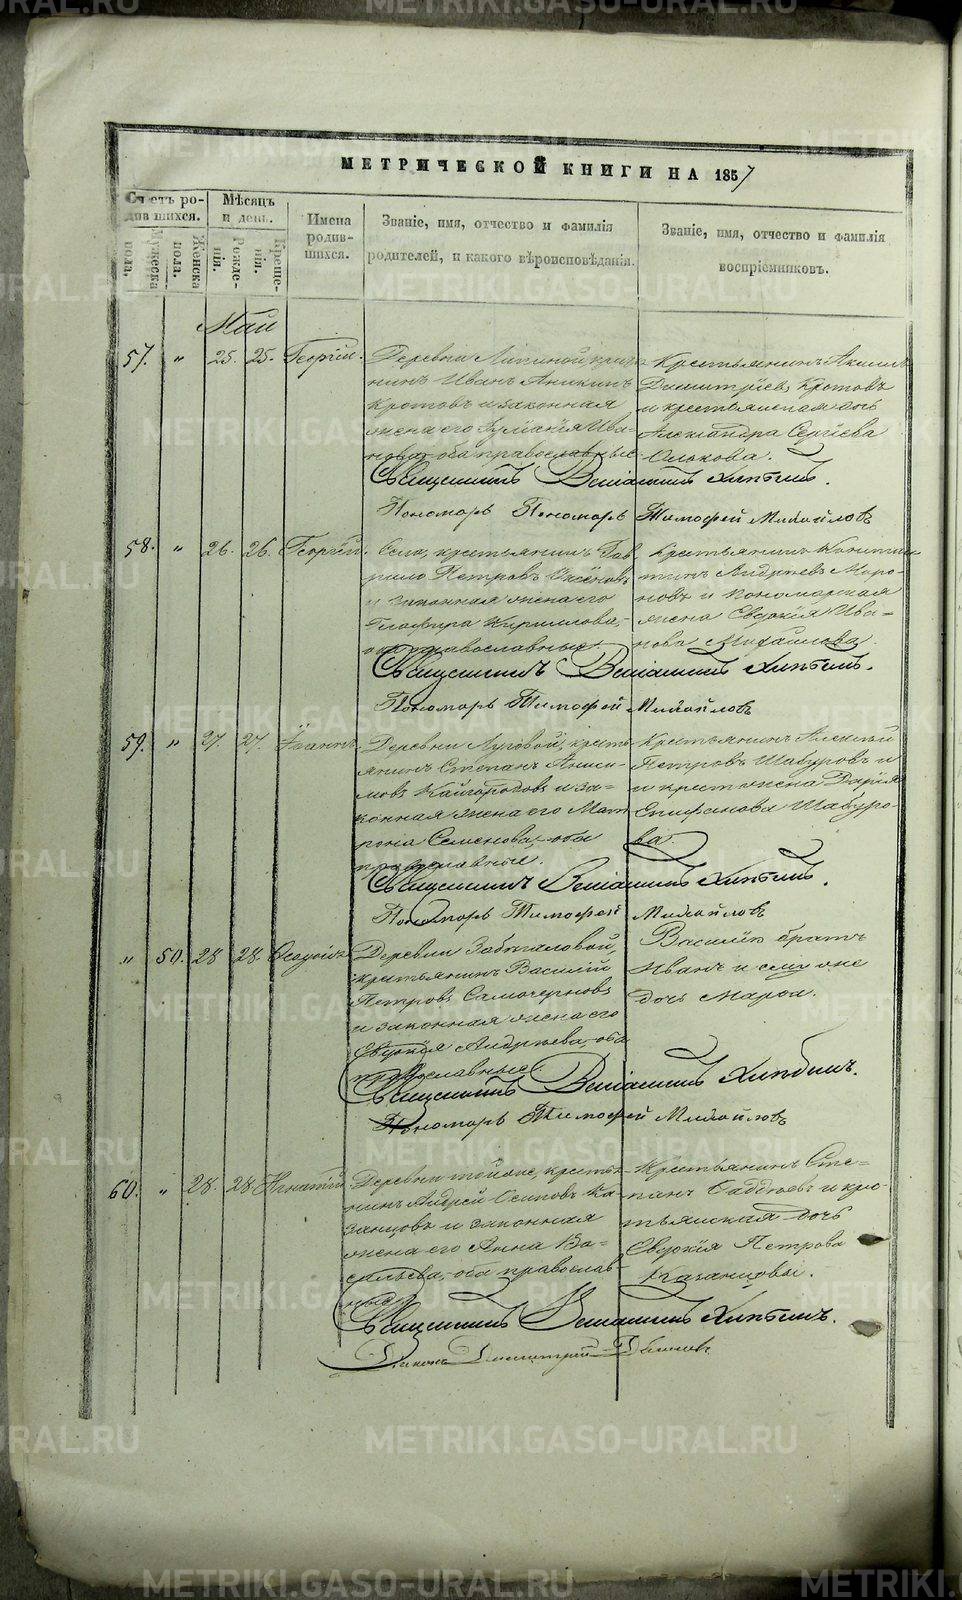 МЕТРИЧЕСКОЙ КНИГИ НА 1857
Счетъ ро-
див шихся.
Мѣсяцъ
и день.
Мужеска
пола.
Женска
пола.
Рожде-
нія.
Креще-
нія.
Имена
родив-
шихся.
Званіе, имя, отчество и фамилія
родителей, и какого вѣроисповѣданія.
Званіе, имя, отчество и фамилія
воспріемниковъ.
Май
57. " 25. 25. Георгій.
Деревни Липиной, крестья-
нинъ Иванъ Аникинъ
Кротовъ и законная
жена его Ива-
нова, оба православные
Крестьянинъ
Димитріевъ Кротовъ
и крестьянская дочь
Александра Сергіева
Священникъ Веніаминъ
Пономарь Пономарь Тимофей Михайловъ
58. " 26. 26. Георгій.
Села, крестьянинъ Гав-
рило Петровъ Аксёновъ
и законная жена его
Глафира Кириллова,
оба православные.
Крестьянинъ Констан-
тинъ Андреевъ Миро-
новъ и пономарская
жена Евдокія Ива-
нова Михайлова.
Священникъ Веніаминъ
Пономарь Тимофей Михайловъ
59. " 27. 27. Іоаннъ.
Деревни Луговой, кресть-
янинъ Степанъ Аниси-
мовъ Кайгородовъ и за-
конная жена его Мат-
рона Семенова, оба
православные.
Крестьянинъ Алексѣй
Петровъ Шабуровъ и
и крест. жена Дарія
Епифанова Шабуро-
ва.
Священникъ Веніаминъ
Пономарь Тимофей Михайловъ
" 50. 28 28. Ѳеодосія
Деревни
крестьянинъ Василій
Петровъ Самочерновъ
и законная жена его
Евдокія Андреева, оба
православные.
Василія братъ
Иванъ и ему же
дочь Марѳа.
Священникъ Веніаминъ
Пономарь Тимофей Михайловъ
60. " 28. 28. Игнатій
Деревни тойже, крестья-
нинъ Андрей Осиповъ Ка-
занцовъ и законная
жена его Анна Ва-
сильева, оба православ-
ные.
Крестьянинъ Сте-
панъ Фаддѣевъ и кре-
стьянская дочь
Евдокія Петрова
Казанцовы.
Священникъ Веніаминъ
Діаконъ Димитрій
METRIKI.GASO-URAL.RU